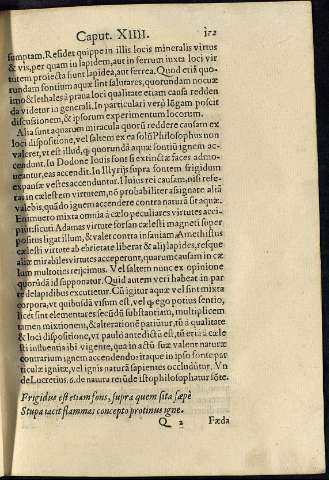 Caput. XIIII.
sumptam. Resides quippe in illis locis mineralis virtus
& vis, per quam in lapidem, aut in ferrum iuxta loci vir
tutem proiecta sunt lapidea, aut ferrea. Quod etiã quo-
rundam fontium aquæ sint salutares, quorundam nocuæ
imo & lethales à praua loci qualitate etiam causa redden
da videtur in generali. In particulari verò lõgam poscit
discussionem, & ipsorum experimentum locorum.
Alia sunt aquarum miracula quorũ reddere causam ex
loci dispositione, vel saltem ex ea solũ Philosophus non
valeret, vt est illud, q̃ quorundã aquæ fontiũ ignem ac-
cendunt. In Dodone Iouis fons si extinctæ faces admo-
ueantur, eas accendit. In Illyrijs supra fontem frigidum
expansæ vestes accenduntur. Huius rei causam, nisi refe-
ras in cælestem virtutem, nõ probabiliter assignare altã
valebis, quãdo ignem accendere contra naturã sit aquæ.
Enimuero mixta omnia à cælo peculiares virtutes acci-
piũt: sicuti Adamas virtute forsan cælesti magneti super
positus ligat illum, & valet contra insaniam. Amethistus
cælesti virtute ab ebrietate liberat & alij lapides, resque
aliæ mirabiles virtutes acceperunt, quarum causam in cæ
lum multoties reijcimus. Vel saltem nunc ex opinione
quorũdã id supponatur. Quid autem veri habeat in par
te de lapidibus excutietur. Cũ igitur aquæ vel sint mixta
corpora, vt quibusdã visum est, vel q̃ ego potius sentio,
licet sint elementares secũdũ substantiam, multiplicem
tamen mixtionem, & alterationẽ patiũtur, tũ a qualitate
& loci dispositione, vt paulo antedictã est, tũ etiã à cæle
sti influentia ibi vigente, qua in actũ suæ valent naturæ
contrarium ignem accendendo: itaque in ipso fonte par
ticulæ ignitæ, vel ignis naturã sapientes occludũtur. Vn
de Lucretius. 6. de natura rerũ de isto philosophatur sõte.
Frigidus est etiam fons, supra quem sita sæpè
Stupa iacit flammas concepto protinus igne.
Q 2 Fœda